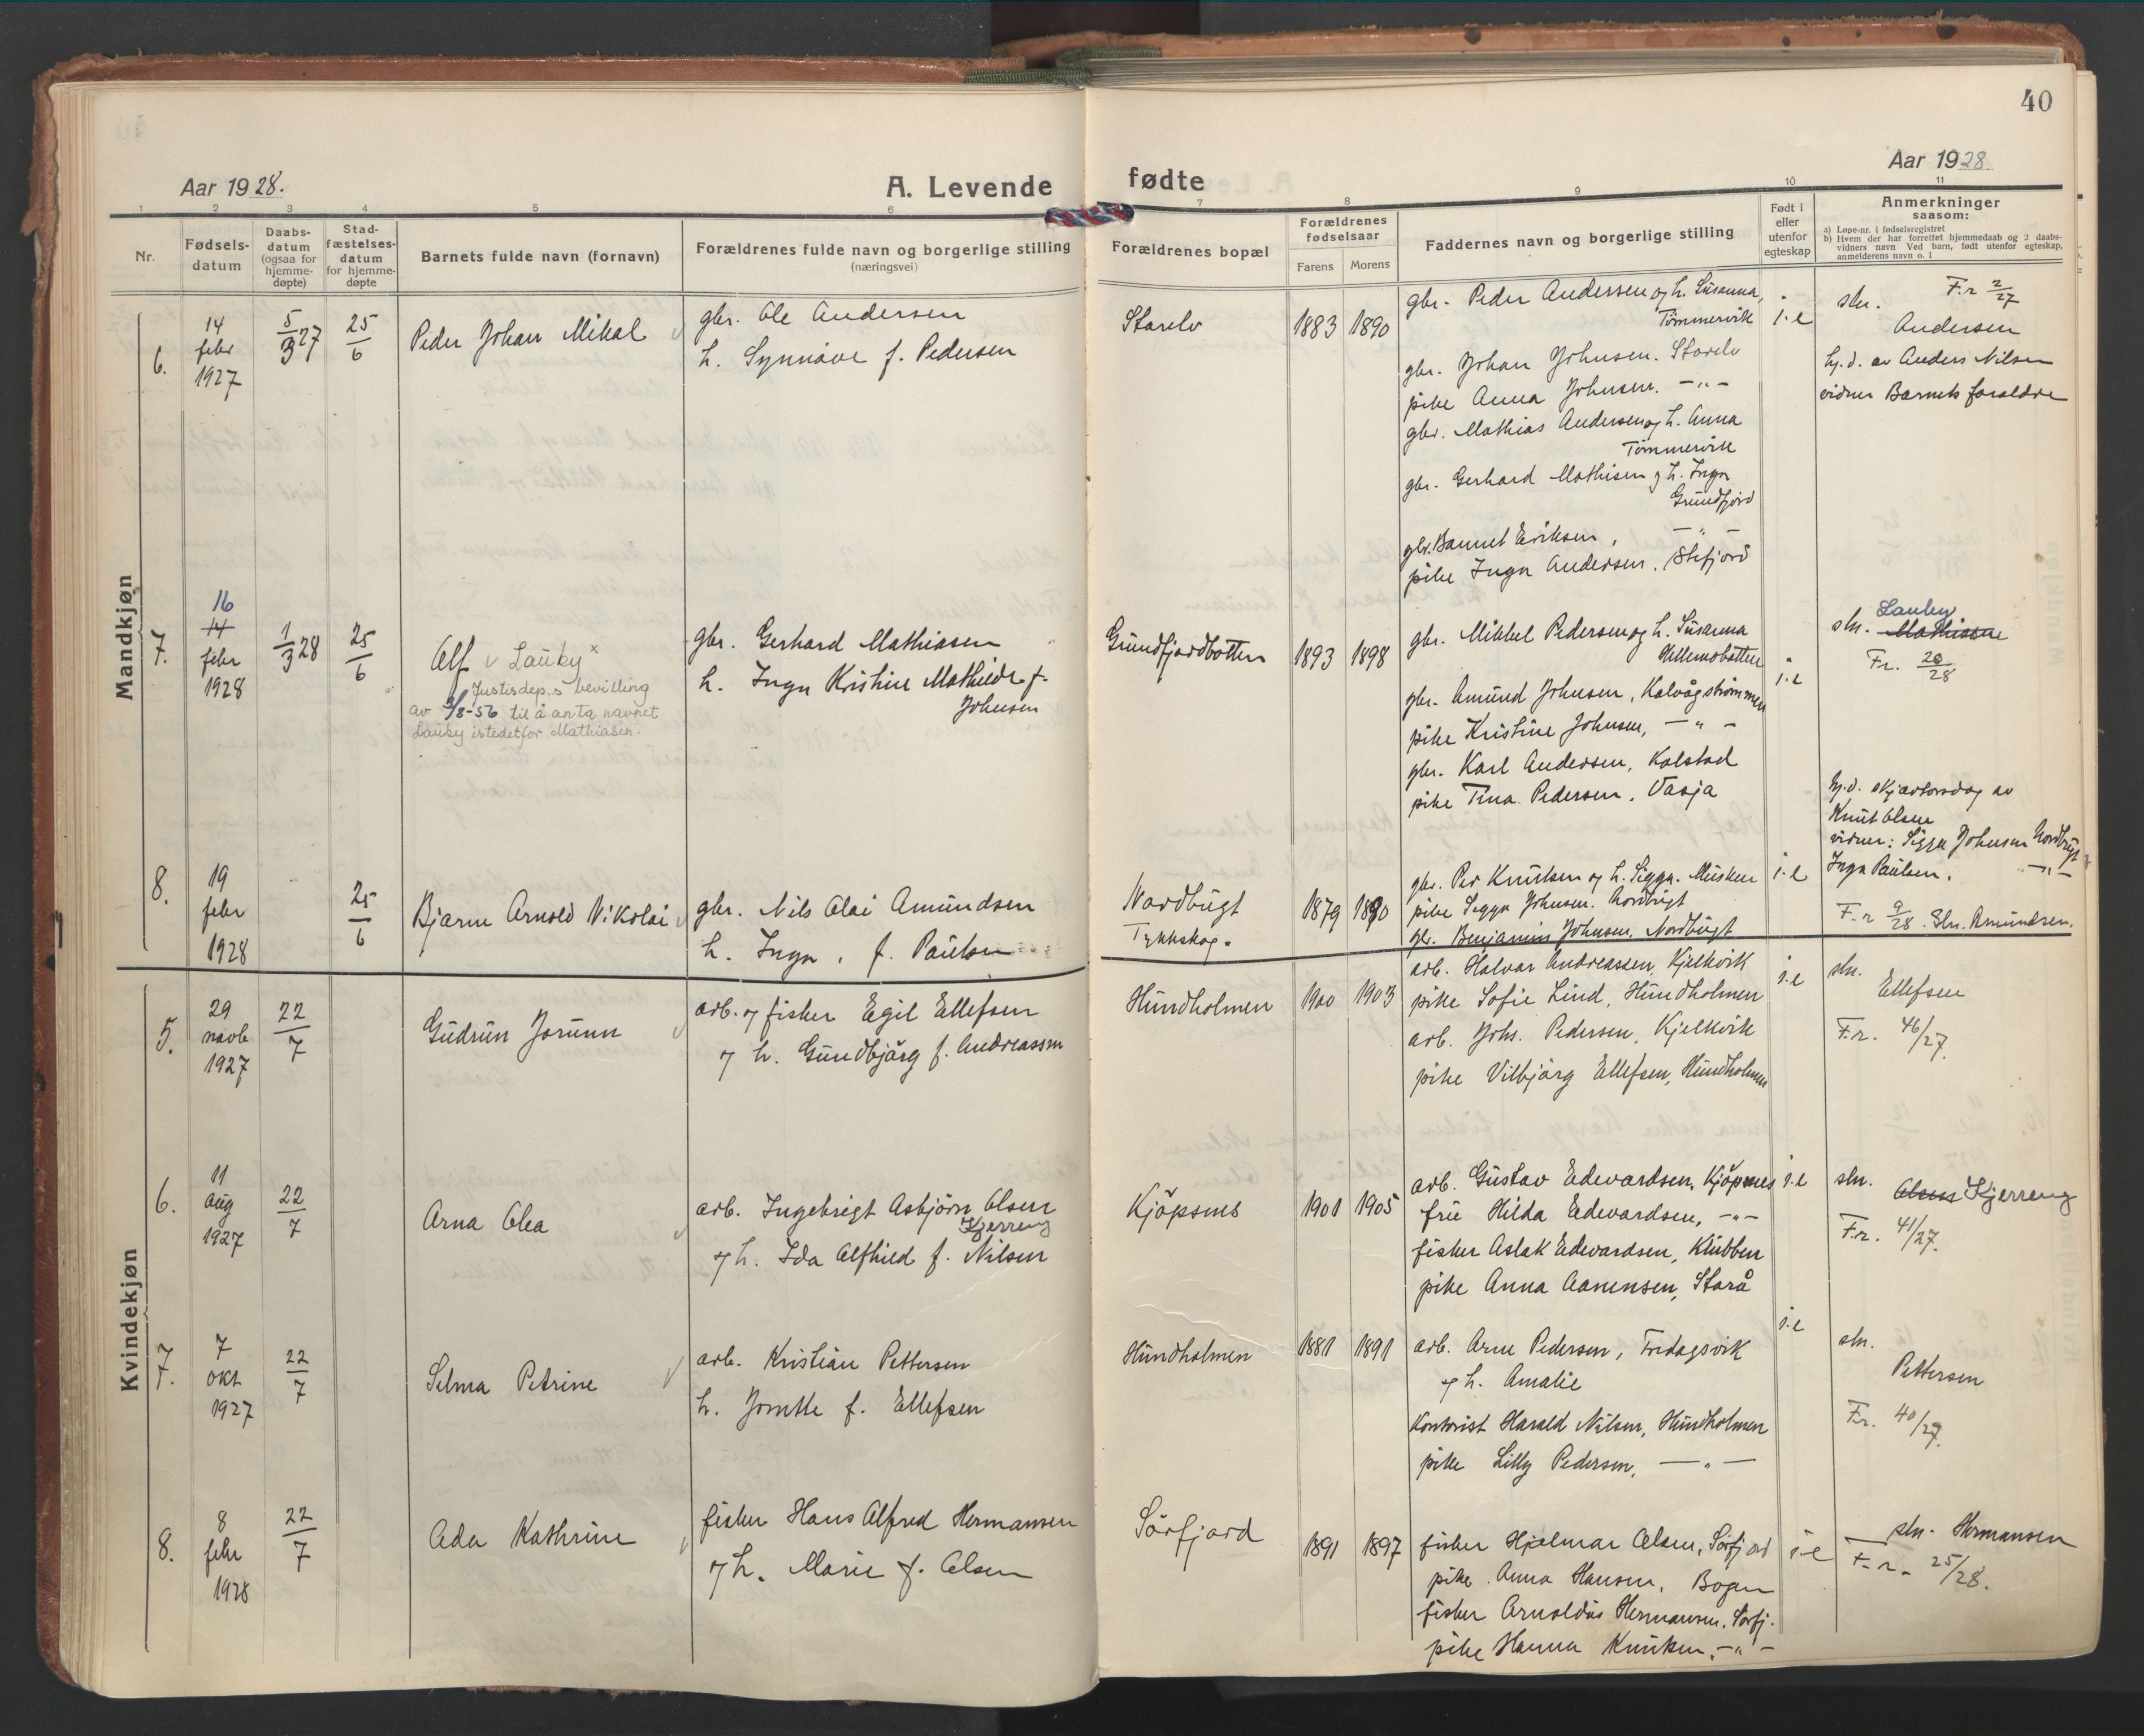 40
Aar 1928.
A. Levende fødte
Aar 1928.
1 2 3 4 5 6 7 8 9 10 11
Nr.
Fødsels-
datum
Daabs-
datum
(ogsaa for
hjemme-
døpte)
Stad-
fæstelses-
datum
for hjemme-
døpte
Barnets fulde navn (fornavn)
Forældrenes fulde navn og borgerlige stilling
(næringsvei)
Forældrenes bopæl
Forældrenes
fødselsaar
Farens Morens
Faddernes navn og borgerlige stilling
Født i
eller
utenfor
egteskap
Anmerkninger
saasom:
a) Løpe-nr. i fødselsregistret
b) Hvem der har forrettet hjemmedaab og 2 daabs-
vidners navn Ved barn, født utenfor egteskap,
anmelderens navn o. l
Mandkjøn
6.
14
febr
1927
5/3 27
25/6
Peder Johan Mikal
gbr. Ole Andersen
h. Synnøve f. Pedersen
Storelv
1883 1890
gbr. Peder Andersen og h. Susanna,
Tømmervik
gbr. Johan Johnsen. Storelv
pike Anna Johnsen. -"-
gbr. Mathias Andersen og h. Anna
Tømmervik
gbr. Gerhard Mathisen og h. Inga
Grundfjord
gbr. Bannet Eriksen, -"-
pike Inga Andersen. Stefjord
i.e
sln. F.r 2/27
Andersen
hj.d. av Anders Nilsen
vidner Barnets foreldre
7.
16
14
febr
1928
1/3 28
25/6
Alf v Lauby x
Justisdep.s bevilling
av 3/8-56 til å anta navnet
Lauby istedetfor Mathiasen.
gbr. Gerhard Mathiasen
h. Inga Kristine Mathilde f.
Johnsen
Grundfjordbotten
1893 1898
gbr. Mikkel Pedersen og h. Susanna
gbr. Amund Johnsen, Kalvågstrømmen
pike Kristine Johnsen, -"-
gbr. Karl Andersen, Kolstad
pike Tina Pedersen. Vasja
i.e
Lauby
sln. Mathisen
Fr. 20/28
8.
19
febr
1928
25/6
Bjarne Arnold Nikolai
gbr. Nils Olai Amundsen
h. Inga, f. Paulsen
Nordbugt
Tykkskog.
1879 1890
gbr. Per Knutsen og h. Sigga. Musken
pike Sigga Johnsen. Nordbugt
gbr. Benjamin Johnsen. Nordbugt
i.e
hj.d. skjærtorsdag av
Knut Olsen
vidner: Sigga Johnsen Nordbugt
Inga Paulsen. -"-
F.r 9/28. Sln. Amundsen.
Kvindekjøn
5.
29
novb
1927
22/7
Gudrun Jorunn
arb. og fisker Egil Ellefsen
og h. Gundbjørg f. Andreassen
Hundholmen
1900 1903
arb. Halvar Andreassen, Kjelkvik
pike Sofie Lind, Hundholmen
arb. Johs. Pedersen, Kjelkvik
pike Vilbjørg Ellefsen, Hundholmen
i.e
sln.
Ellefsen
F.r. 46/27.
6.
11
aug
1927
22/7
Arna Olea
arb. Ingebrigt Asbjørn Olsen
Kjerreng
og h. Ida Alfhild f. Nilsen
Kjöpsnes
1901 1905
arb. Gustav Edevardsen, Kjöpnes
frue Hilda Edevardsen, -"-
fisker Aslak Edevardsen, Klubben
pike Anna Aanensen, Storå
i.e
sln.
Olsen Kjerreng
F.r. 41/27.
7.
7
okt
1927
22/7
Selma Petrine
arb. Kristian Pettersen
h. Jomtte f. Ellefsen
Hundholmen
1881 1891
arb. Arne Pedersen, Fredagsvik
og h. Amalie
Kontorist Harald Nilsen, Hundholmen
pike Lilly Pedersen, -"-
i.e
sln.
Pettersen
F.r. 40/27.
8.
8
febr
1928
22/7
Ada Kathrine
fisker Hans Alfred Hermansen
og h. Marie f. Olsen
Sörfjord
1891 1897
fisker Hjalmar Olsen, Sörfjord
pike Anna Hansen, Bogen
fisker Arnoldus Hermansen. Sörfj.
pike Hanna Knutsen, -"-
i.e
sln. Hermansen
F.r. 25/28.